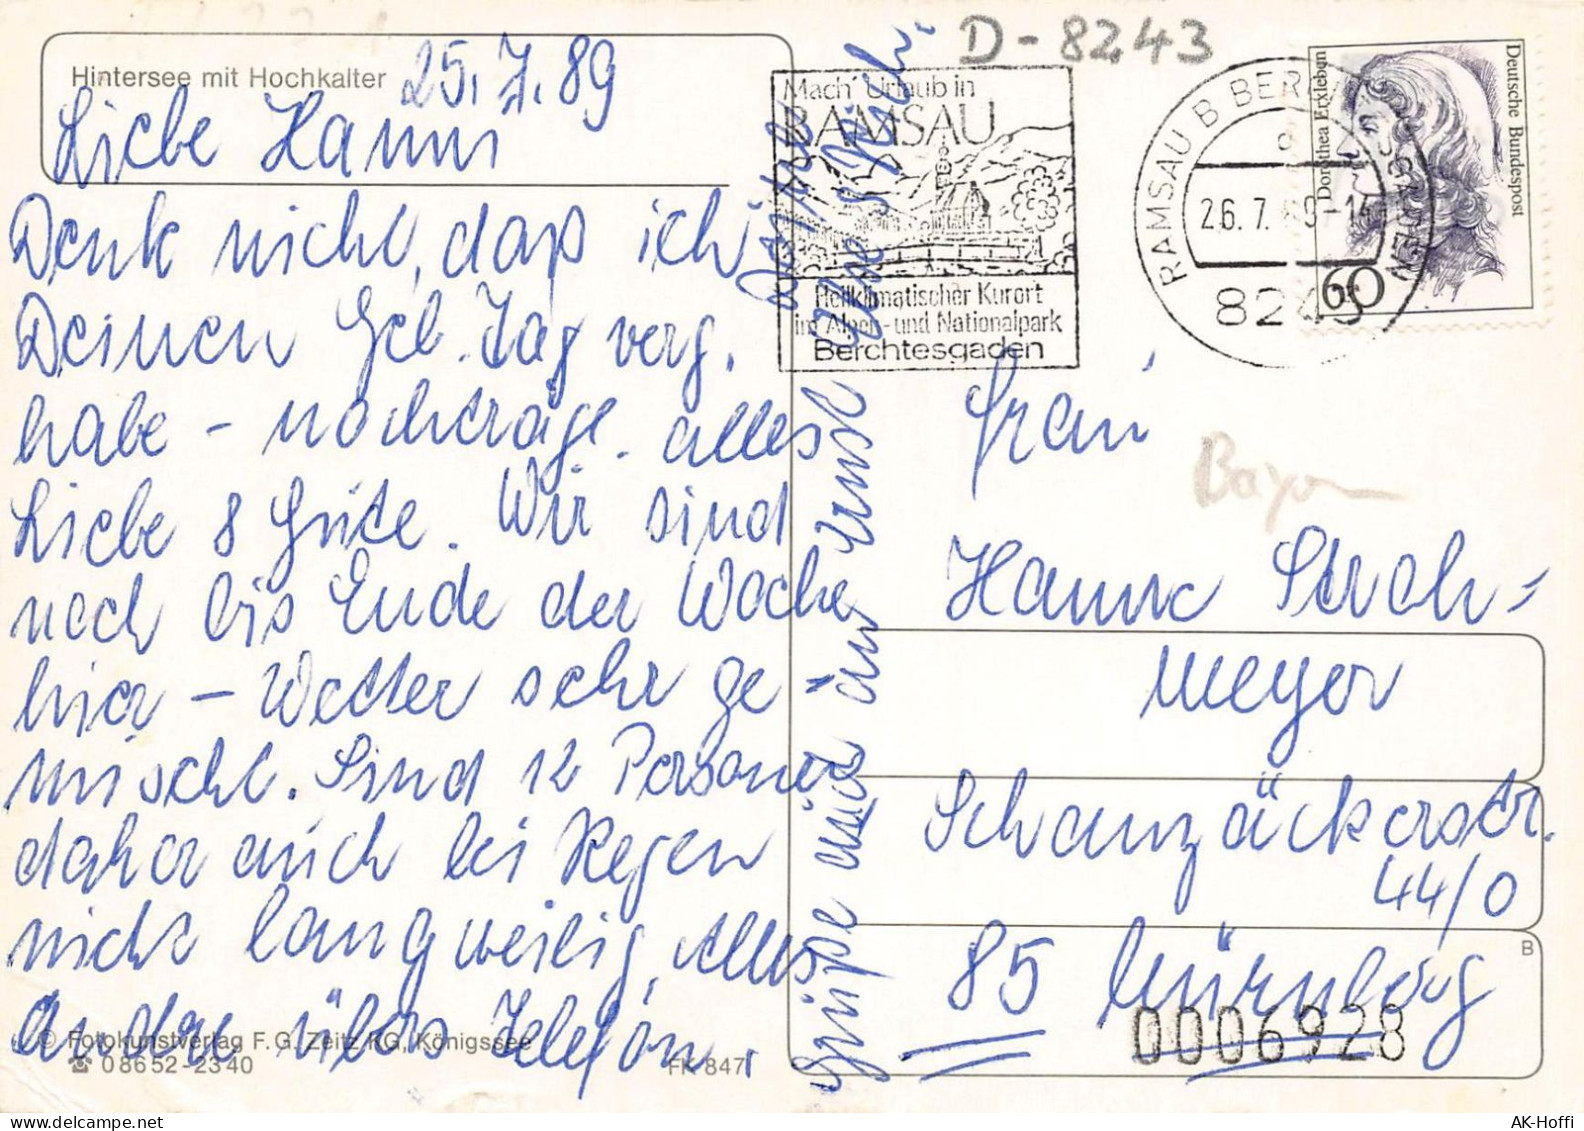 Hintersee mit Hochkalter
25.7.89
Liebe Hanni
Denk nicht, daß ich
Deinen Geb. Tag verg.
habe - nachträgl. alles
Liebe & Gute. Wir sind
noch bis Ende der Woche
hier - Wetter sehr ge
mischt. Sind 12 Personen
daher auch bei Regen
nicht langweilig. Alles
andere übers Telefon.
Grüße auch an Ernst
© Fotokunstverlag F. G. Zeitz KG, Königssee
☎ 08652-2340
FK 847
D-8243
Mach' Urlaub in
RAMSAU
Heilklimatischer Kurort
im Alpen- und Nationalpark
Berchtesgaden
RAMSAU B BERCHTESGADEN
26.7.89-14
8243
Deutsche Bundespost
Dorothea Erxleben
60
Frau
Hanne Stroh-
meyer
Schanzäckerstr.
44/0
85 Nürnberg
B
0006928
AK-Hoffi